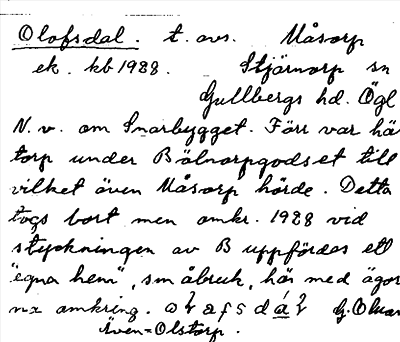 Olofsdal. t. avs. Måsorp
ek. kb 1988. Stjärnorp sn
Gullbergs hd. Ögl
N. v. om Snarbygget. Förr var hä
torp under Bälnorpgodset till
vilket även Måsorp hörde. Detta
togs bort men omkr. 1928 vid
styckningen av B uppfördes ett
"egna hem", småbruk, här med ägor
na omkring. G. Oluar
Även = Olstorp.